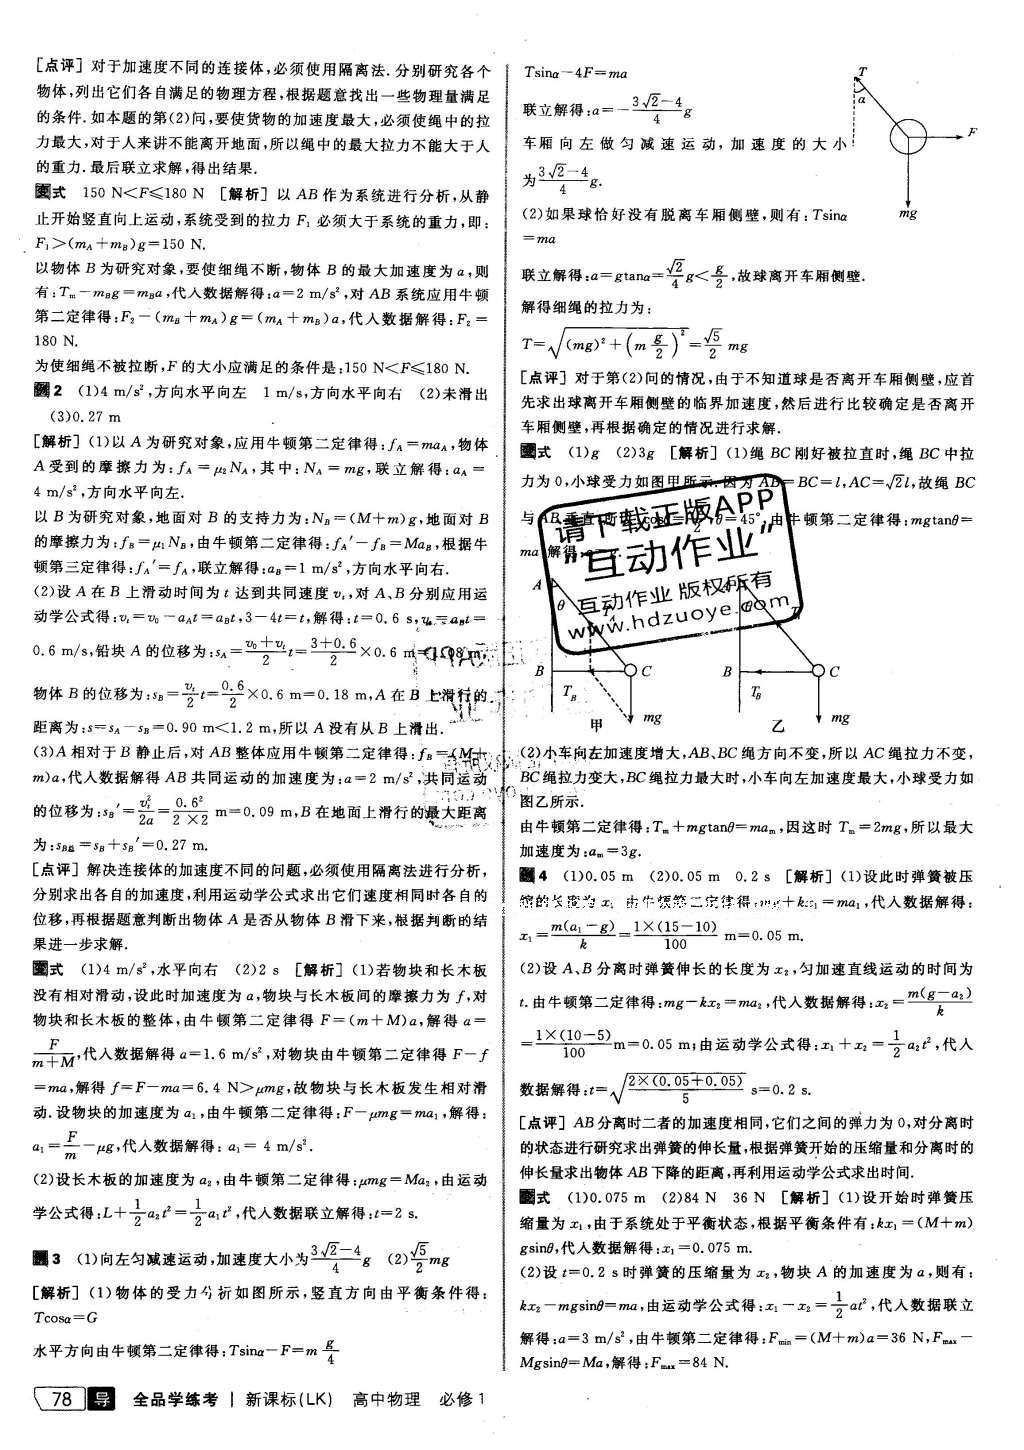 [点评] 对于加速度不同的连接体,必须使用隔离法.分别研究各个
物体,列出它们各自满足的物理方程,根据题意找出一些物理量满足
的条件.如本题的第(2)问,要使货物的加速度最大,必须使绳中的拉
力最大,对于人来讲不能离开地面,所以绳中的最大拉力不能大于人
的重力.最后联立求解,得出结果.
变式 150 N<F≤180 N [解析] 以 AB 作为系统进行分析,从静
止开始竖直向上运动,系统受到的拉力 F₁ 必须大于系统的重力,即:
F₁>(m_A+m_B)g=150 N.
以物体 B 为研究对象,要使细绳不断,物体 B 的最大加速度为 a,则
有:T_m-m_Bg=m_Ba,代入数据解得:a=2 m/s²,对 AB 系统应用牛顿
第二定律得:F₂-(m_B+m_A)g=(m_A+m_B)a,代入数据解得:F₂=
180 N.
为使细绳不被拉断,F 的大小应满足的条件是:150 N<F≤180 N.
例2 (1)4 m/s²,方向水平向左 1 m/s,方向水平向右 (2)未滑出
(3)0.27 m
[解析] (1)以 A 为研究对象,应用牛顿第二定律得:f_A=ma_A,物体
A 受到的摩擦力为:f_A=μ₂N_A,其中:N_A=mg,联立解得:a_A=
4 m/s²,方向水平向左.
以 B 为研究对象,地面对 B 的支持力为:N_B=(M+m)g,地面对 B
的摩擦力为:f_B=μ₁N_B,由牛顿第二定律得:f_A′-f_B=Ma_B,根据牛
顿第三定律得:f_A′=f_A,联立解得:a_B=1 m/s²,方向水平向右.
(2)设 A 在 B 上滑动时间为 t 达到共同速度 v_t,对 A、B 分别应用运
动学公式得:v_t=v₀-a_At=a_Bt,3-4t=t,解得:t=0.6 s,v_t=a_Bt=
0.6 m/s,铅块 A 的位移为:s_A=(v₀+v_t)/2 t=(3+0.6)/2×0.6 m=1.08 m,
物体 B 的位移为:s_B=v_t/2 t=0.6/2×0.6 m=0.18 m,A 在 B 上滑行的
距离为:s=s_A-s_B=0.90 m<1.2 m,所以 A 没有从 B 上滑出.
(3)A 相对于 B 静止后,对 AB 整体应用牛顿第二定律得:f_B=(M+
m)a,代入数据解得 AB 共同运动的加速度为:a=2 m/s²,共同运动
的位移为:s_B′=v_t²/2a=0.6²/(2×2) m=0.09 m,B 在地面上滑行的最大距离
为:s_B总=s_B+s_B′=0.27 m.
[点评] 解决连接体的加速度不同的问题,必须使用隔离法进行分析,
分别求出各自的加速度,利用运动学公式求出它们速度相同时各自的
位移,再根据题意判断出物体 A 是否从物体 B 滑下来,根据判断的结
果进一步求解.
变式 (1)4 m/s²,水平向右 (2)2 s [解析] (1)若物块和长木板
没有相对滑动,设此时加速度为 a,物块与长木板间的摩擦力为 f,对
物块和长木板的整体,由牛顿第二定律得 F=(m+M)a,解得 a=
F/(m+M),代入数据解得 a=1.6 m/s²,对物块由牛顿第二定律得 F-f
=ma,解得 f=F-ma=6.4 N>μmg,故物块与长木板发生相对滑
动.设物块的加速度为 a₁,由牛顿第二定律得:F-μmg=ma₁,解得:
a₁=F/m-μg,代入数据解得:a₁=4 m/s².
(2)设长木板的加速度为 a₂,由牛顿第二定律得:μmg=Ma₂,由运动
学公式得:L+1/2 a₂t²=1/2 a₁t²,代入数据联立解得:t=2 s.
例3 (1)向左匀减速运动,加速度大小为(3√2-4)/4 g (2)√5/2 mg
[解析] (1)物体的受力分析如图所示,竖直方向由平衡条件得:
Tcosα=G
水平方向由牛顿第二定律得:Tsinα-F=m g/4
78 导 全品学练考 | 新课标(LK) 高中物理 必修1
Tsinα-4F=ma
联立解得:a=-(3√2-4)/4 g
车厢向左做匀减速运动,加速度的大小
为(3√2-4)/4 g.
(2)如果球恰好没有脱离车厢侧壁,则有:Tsinα
=ma
T
α
F
mg
联立解得:a=gtanα=√2/4 g<g/2,故球离开车厢侧壁.
解得细绳的拉力为:
T=√((mg)²+(m g/2)²)=√5/2 mg
[点评] 对于第(2)问的情况,由于不知道球是否离开车厢侧壁,应首
先求出球离开车厢侧壁的临界加速度,然后进行比较确定是否离开
车厢侧壁,再根据确定的情况进行求解.
变式 (1)g (2)3g [解析] (1)绳 BC 刚好被拉直时,绳 BC 中拉
力为 0,小球受力如图甲所示.因为 AB=BC=l,AC=√2l,故绳 BC
与 AB 垂直,所以 cosθ= θ=45°.由牛顿第二定律得:mgtanθ=
ma,解得:a=g.
请下载正版APP
"互动作业"
互动作业 版权所有
www.hdzuoye.com
A
θ
T
B
C
T_B
mg
甲
B
C
T_B
mg
乙
(2)小车向左加速度增大,AB、BC 绳方向不变,所以 AC 绳拉力不变,
BC 绳拉力变大,BC 绳拉力最大时,小车向左加速度最大,小球受力如
图乙所示.
由牛顿第二定律得:T_m+mgtanθ=ma_m,因这时 T_m=2mg,所以最大
加速度为:a_m=3g.
例4 (1)0.05 m (2)0.05 m 0.2 s [解析] (1)设此时弹簧被压
缩的长度为 x₁ 由牛顿第二定律得:mg+kx₁=ma₁,代入数据解得:
x₁=m(a₁-g)/k=1×(15-10)/100 m=0.05 m.
(2)设 A、B 分离时弹簧伸长的长度为 x₂,匀加速直线运动的时间为
t.由牛顿第二定律得:mg-kx₂=ma₂,代入数据解得:x₂=m(g-a₂)/k
=1×(10-5)/100 m=0.05 m;由运动学公式得:x₁+x₂=1/2 a₂t²,代入
数据解得:t=√(2×(0.05+0.05)/5) s=0.2 s.
[点评] AB 分离时二者的加速度相同,它们之间的弹力为 0,对分离时
的状态进行研究求出弹簧的伸长量,根据弹簧开始的压缩量和分离时的
伸长量求出物体 AB 下降的距离,再利用运动学公式求出时间.
变式 (1)0.075 m (2)84 N 36 N [解析] (1)设开始时弹簧压
缩量为 x₁,由于系统处于平衡状态,根据平衡条件有:kx₁=(M+m)
gsinθ,代入数据解得:x₁=0.075 m.
(2)设 t=0.2 s 时弹簧的压缩量为 x₂,物块 A 的加速度为 a,则有:
kx₂-mgsinθ=ma,由运动学公式得:x₁-x₂=1/2 at²,代入数据联立
解得:a=3 m/s²,由牛顿第二定律得:F_min=(M+m)a=36 N,F_max-
Mgsinθ=Ma,解得:F_max=84 N.